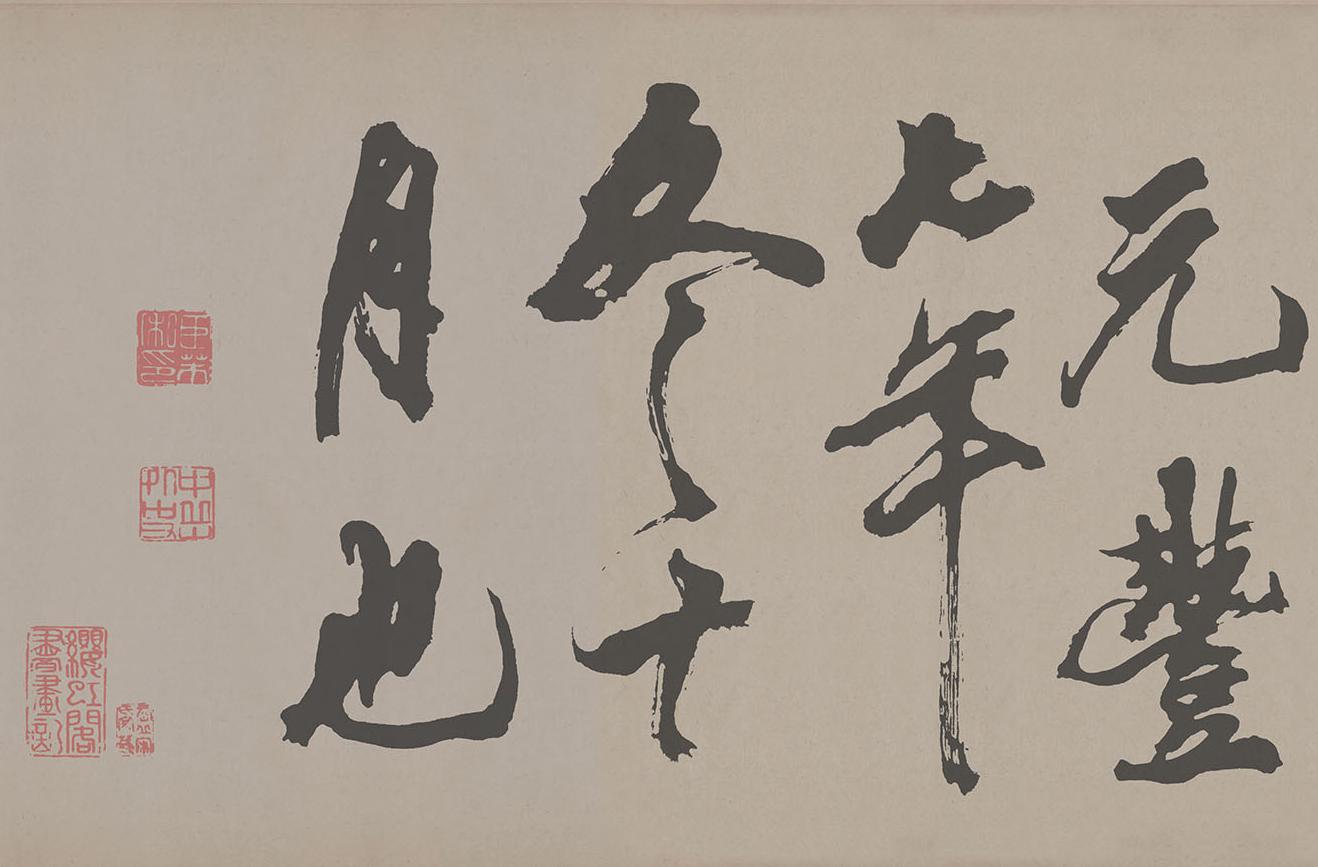 元豐
七年
冬十
月也